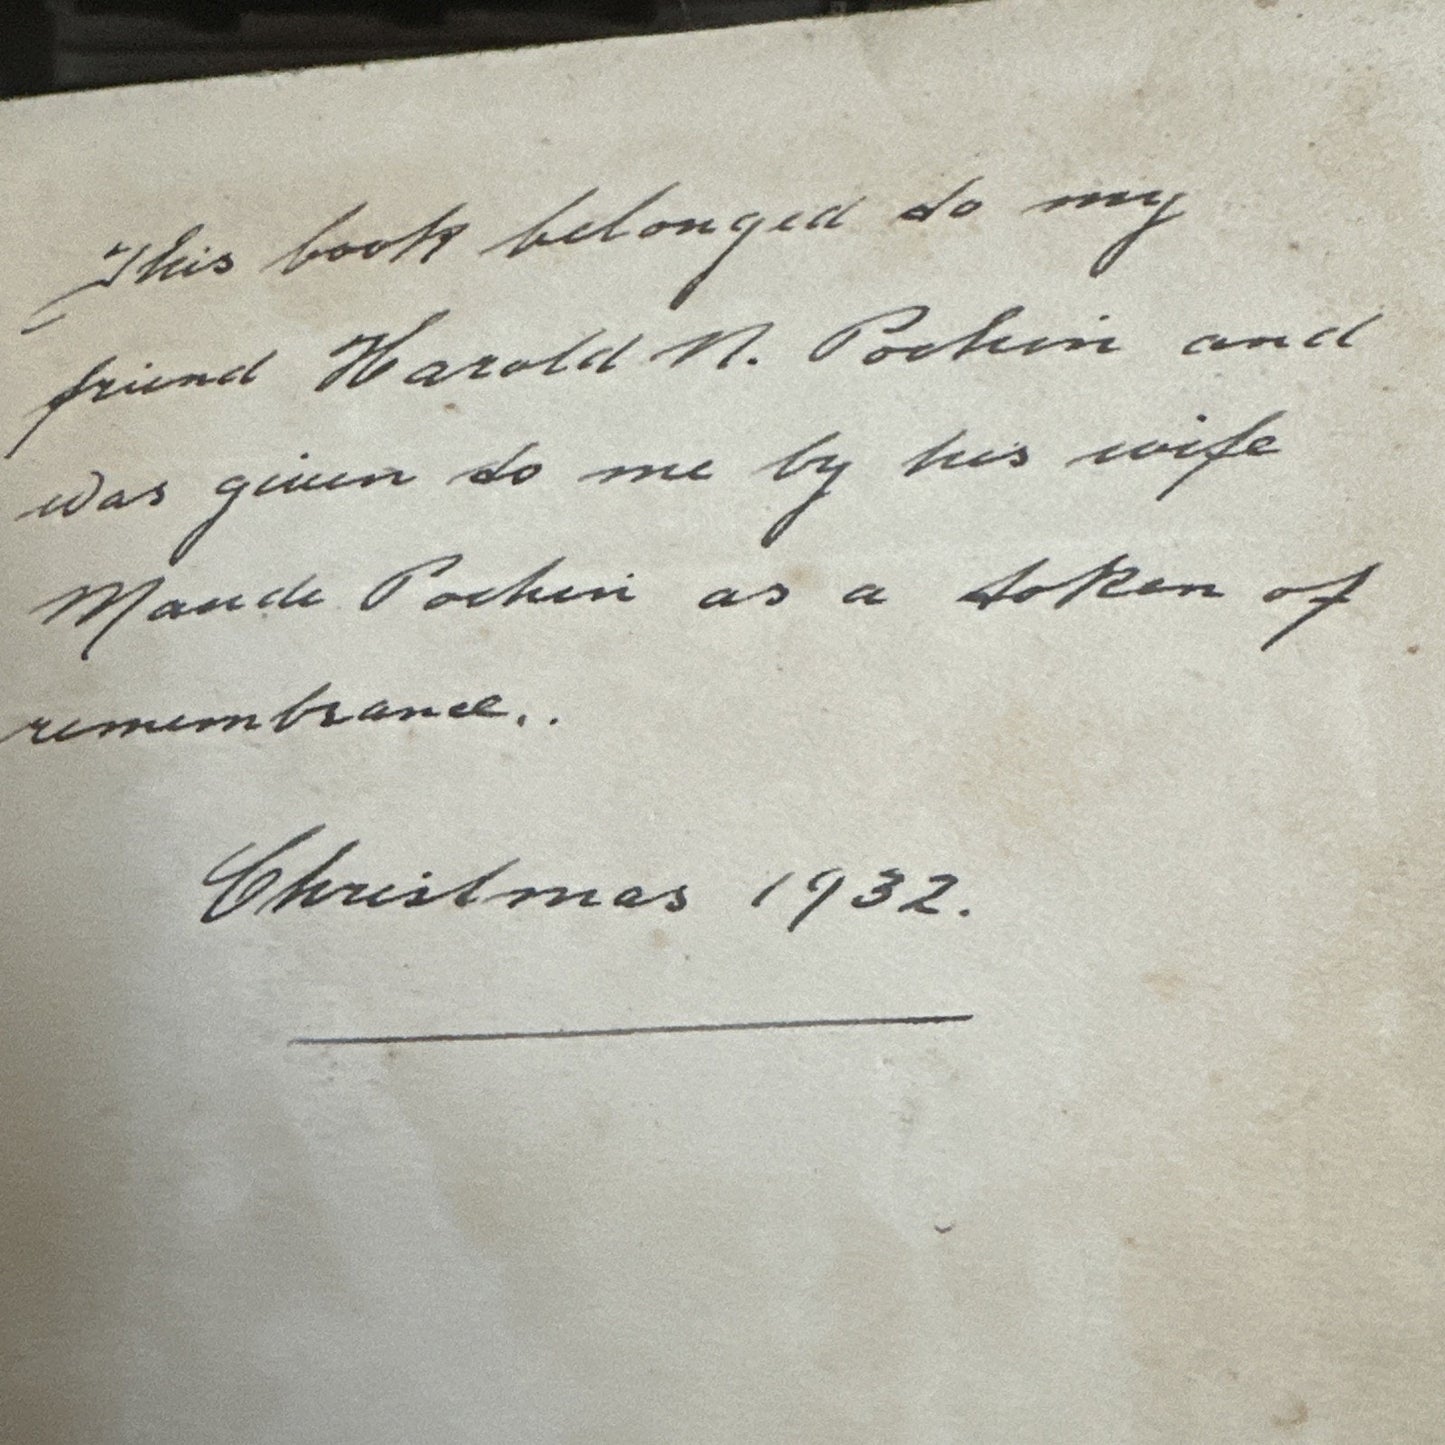 This book belonged to my
friend Harold N. Pochin and
was given to me by his wife
Maude Pochin as a token of
remembrance..
Christmas 1932.